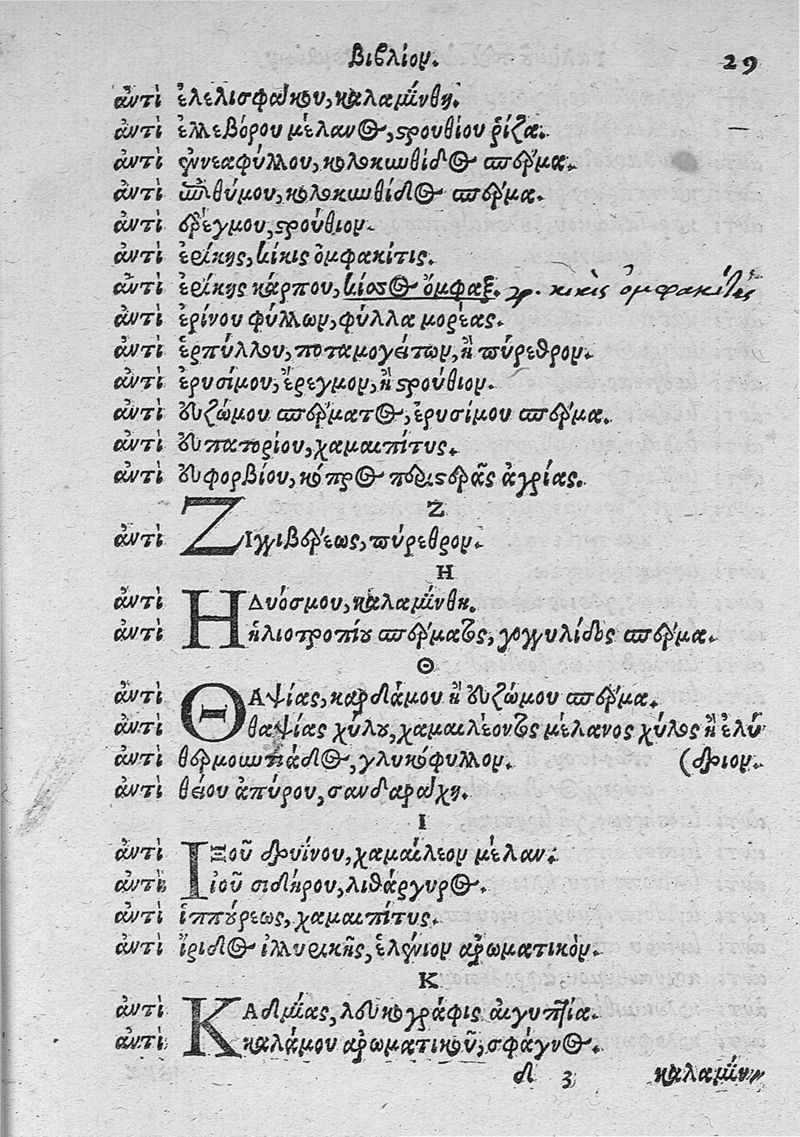 βιβλίον. 29
ἀντὶ ἐλελισφάκου, καλαμίνθη.
ἀντὶ ἐλλεβόρου μέλανος, στρουθίου ῥίζα.
ἀντὶ ἐννεαφύλλου, κολοκυνθίδος σπέρμα.
ἀντὶ ἐπιθύμου, κολοκυνθίδος σπέρμα.
ἀντὶ ἐρέγμου, στρούθιον.
ἀντὶ ἐρίκης, κίκις ὀμφακίτις.
ἀντὶ ἐρίκης κάρπου, κίσσος ὄμφαξ. γρ. κικὶς ὀμφακίτις
ἀντὶ ἐρίνου φύλλων, φύλλα μορέας.
ἀντὶ ἑρπύλλου, ποταμογείτων, ἢ πύρεθρον.
ἀντὶ ἐρυσίμου, ἔρεγμον, ἢ στρούθιον.
ἀντὶ εὐζώμου σπέρματος, ἐρυσίμου σπέρμα.
ἀντὶ εὐπατορίου, χαμαιπίτυς.
ἀντὶ εὐφορβίου, κόπρος περιστερᾶς ἀγρίας.
Ζ
ἀντὶ ΖΙγγιβέρεως, πύρεθρον.
Η
ἀντὶ ΗΔυόσμου, καλαμίνθη.
ἀντὶ ἡλιοτροπίου σπέρματος, γογγυλίδος σπέρμα.
Θ
ἀντὶ ΘΑψίας, καρδάμου ἢ εὐζώμου σπέρμα.
ἀντὶ θαψίας χύλου, χαμαιλέοντος μέλανος χύλος ἢ ἐλύ
ἀντὶ θερμουπάδος, γλυκόφυλλον. (δριον.
ἀντὶ θείου ἀπύρου, σανδαράχη.
Ι
ἀντὶ ΙΞοῦ δρυίνου, χαμαίλεον μέλαν.
ἀντὶ ἰοῦ σιδήρου, λιθάργυρος.
ἀντὶ ἱππύρεως, χαμαιπίτυς.
ἀντὶ ἴριδος ἰλλυρικῆς, ἑλένιον ἀρωματικὸν.
Κ
ἀντὶ ΚΑδμίας, λευκογράφις αἰγυπτία.
ἀντὶ καλάμου ἀρωματικοῦ, σφάγνος.
δ 3 καλαμίν⸗